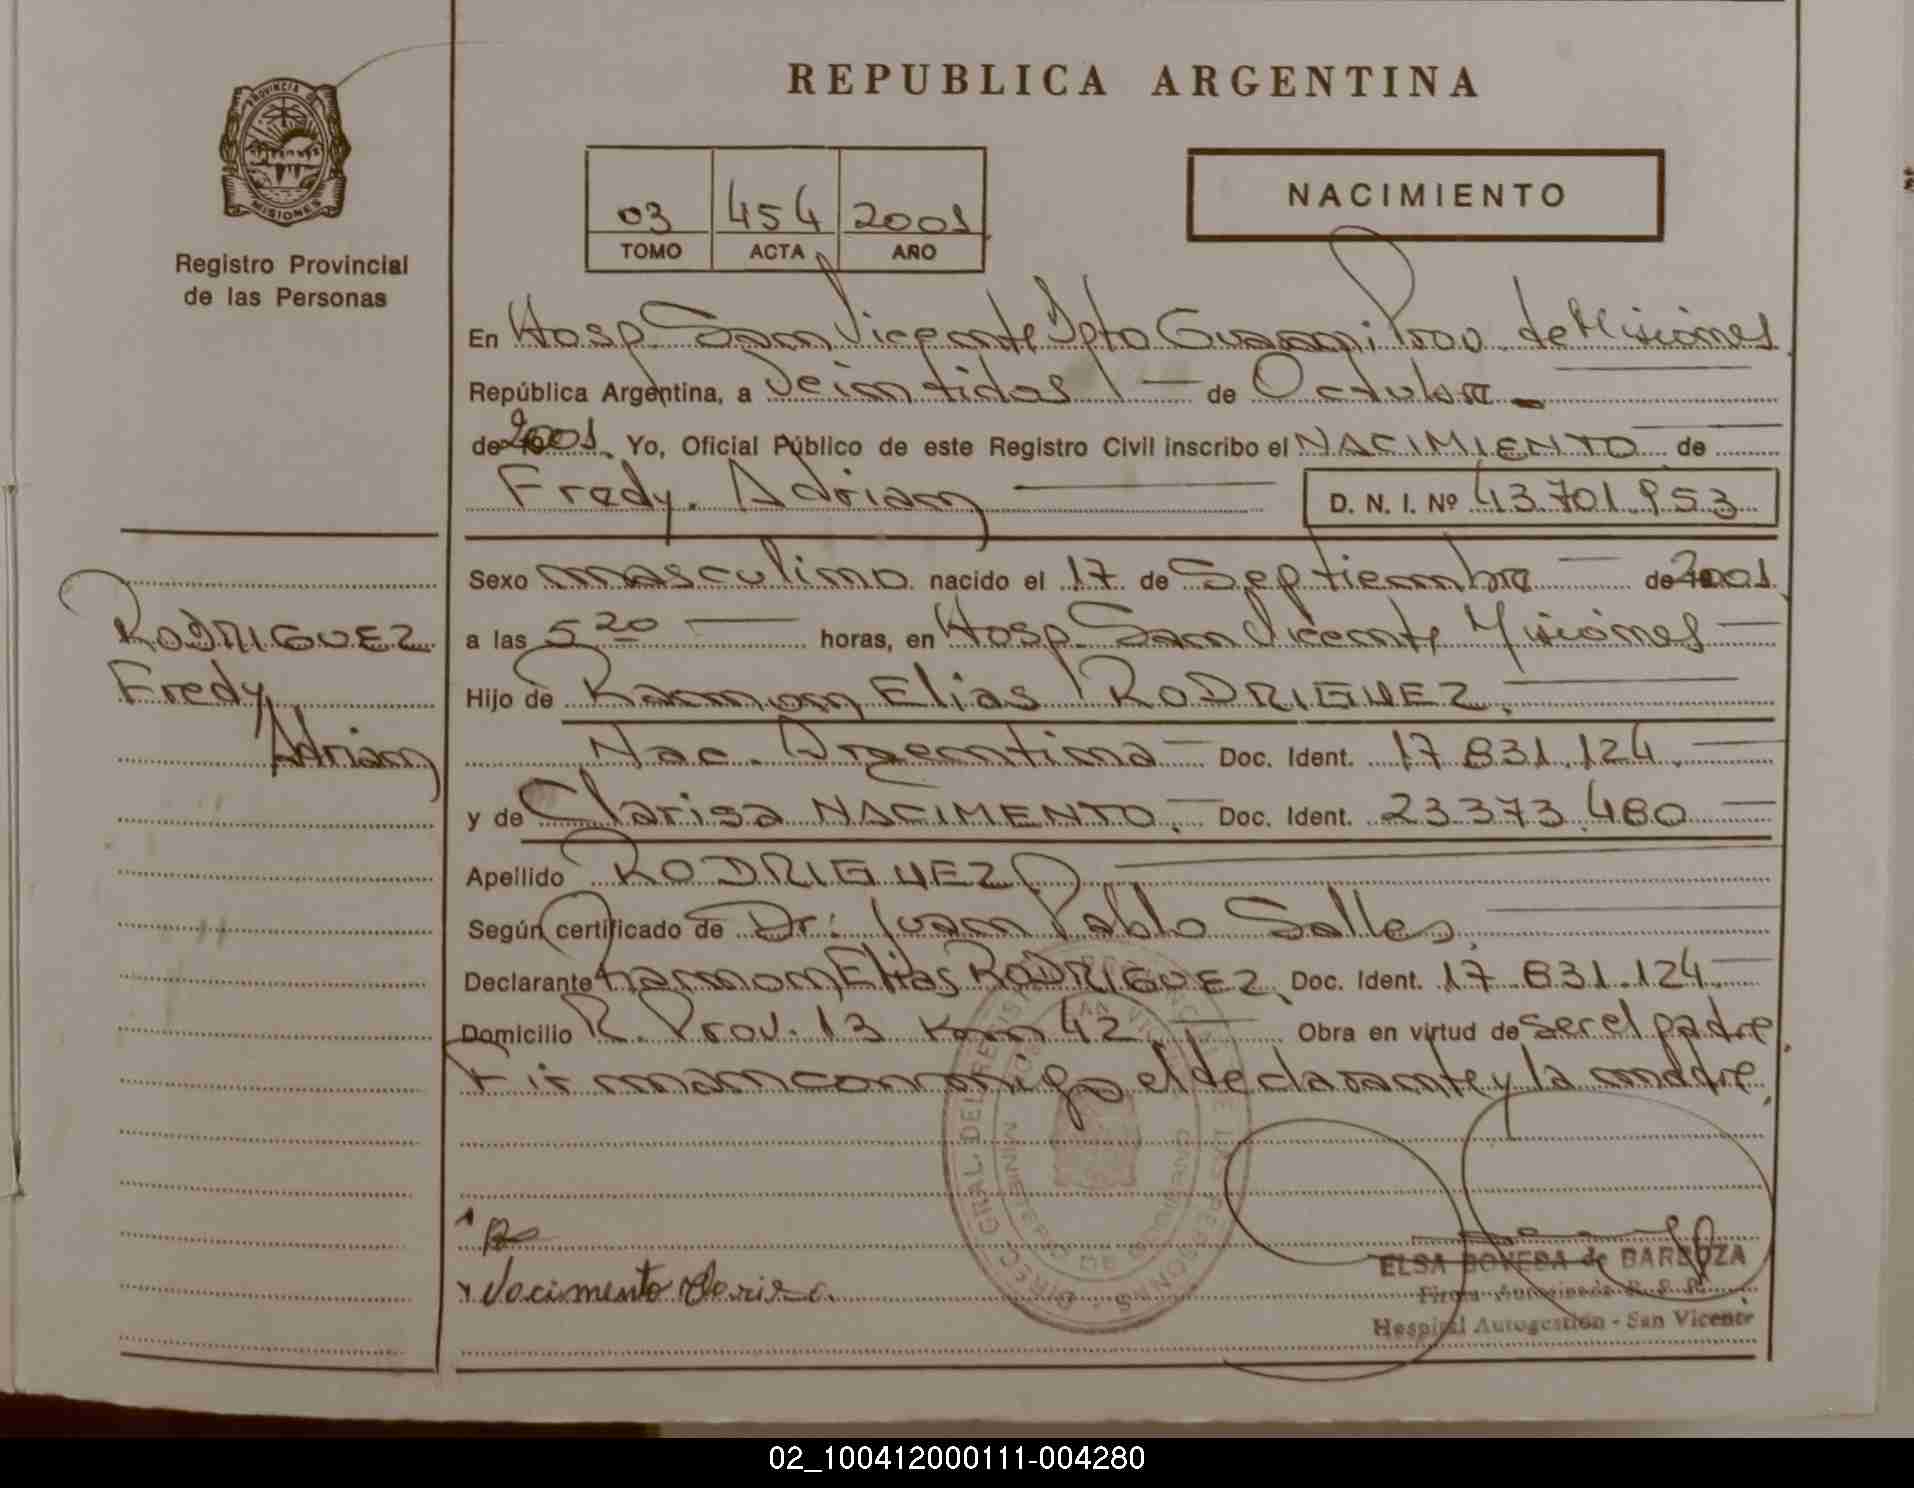 REPUBLICA ARGENTINA
PROVINCIA DE
MISIONES
Registro Provincial
de las Personas
03 454 2001
TOMO ACTA AÑO
NACIMIENTO
En Hosp. San Vicente Dpto Guarani Prov. de Misiones
República Argentina, a Veintidos de Octubre
de 2001. Yo, Oficial Público de este Registro Civil inscribo el NACIMIENTO de
Fredy. Adrian D. N. I. Nº 43.701.953
Sexo masculino nacido el 17 de Septiembre de 2001
a las 5 20 horas, en Hosp. San Vicente Misiones
Hijo de Ramon Elias RODRIGUEZ.
Nac. Argentina Doc. Ident. 17 831.124.
y de Clarisa NACIMENTO. Doc. Ident. 23 373.480
Apellido RODRIGUEZ
Según certificado de Dr: Juan Pablo Salles.
Declarante Ramon Elias RODRIGUEZ. Doc. Ident. 17.831.124.
Domicilio R. Prov. 13 Km 42. Obra en virtud de ser el padre
Firman conmigo el declarante y la madre.
RODRIGUEZ
Fredy
Adrian
Nacimento Clarisa.
ELSA BOVEDA de BARBOZA
Firma Autorizada R. P. P.
Hospital Autogestión - San Vicente
DIREC. GRAL. DEL REGISTRO PROVINCIAL DE LAS PERSONAS
MINISTERIO DE GOBIERNO
02_100412000111-004280